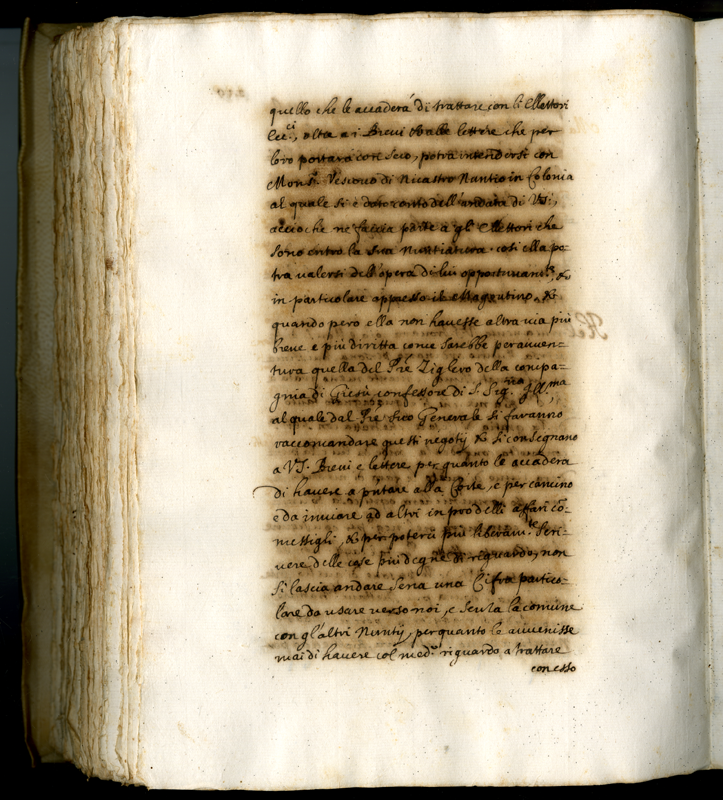 quello che le accaderá di trattare con li Elettori
Ecc.ci, oltra a i Brevi et alle lettere che per
loro portará con Seco, potrá intendersi con
Mons.r Vescovo di Nicastro Nuntio in Colonia
al quale si é dato conto dell'andata di VS,
accioche ne faccia parte a gli Elettori che
sono entro la sua Nuntiatura. cosi ella po=
tra valersi dell'opera di lui opportunam.te, &
in particolare appresso il Magontino, &
quando pero ella non havesse altra via piú
breve e piú diritta come sarebbe peravven=
tura quella del Pré Ziglero della compa=
gnia di Giesú confessore di S. Sig.ria Ill.ma
al quale dal Pre Suo Generale si faranno
raccomandare questi negotij & si consegnano
a VS. Brevi e lettere per quanto le accaderá
di havere a pntare alla Corte, e per camino
e da inviare ad altri in pro delli affari cõ=
messigli, & per poterci piú liberam.te Scri=
vere delle cose piú degne di riguardo, non
si lascia andare Senza una Cifra partico=
lare da usare verso noi, e Senza la comune
con gl'altri Nuntij, perquanto le avvenisse
mai di havere col med.o riguardo a trattare
con esso